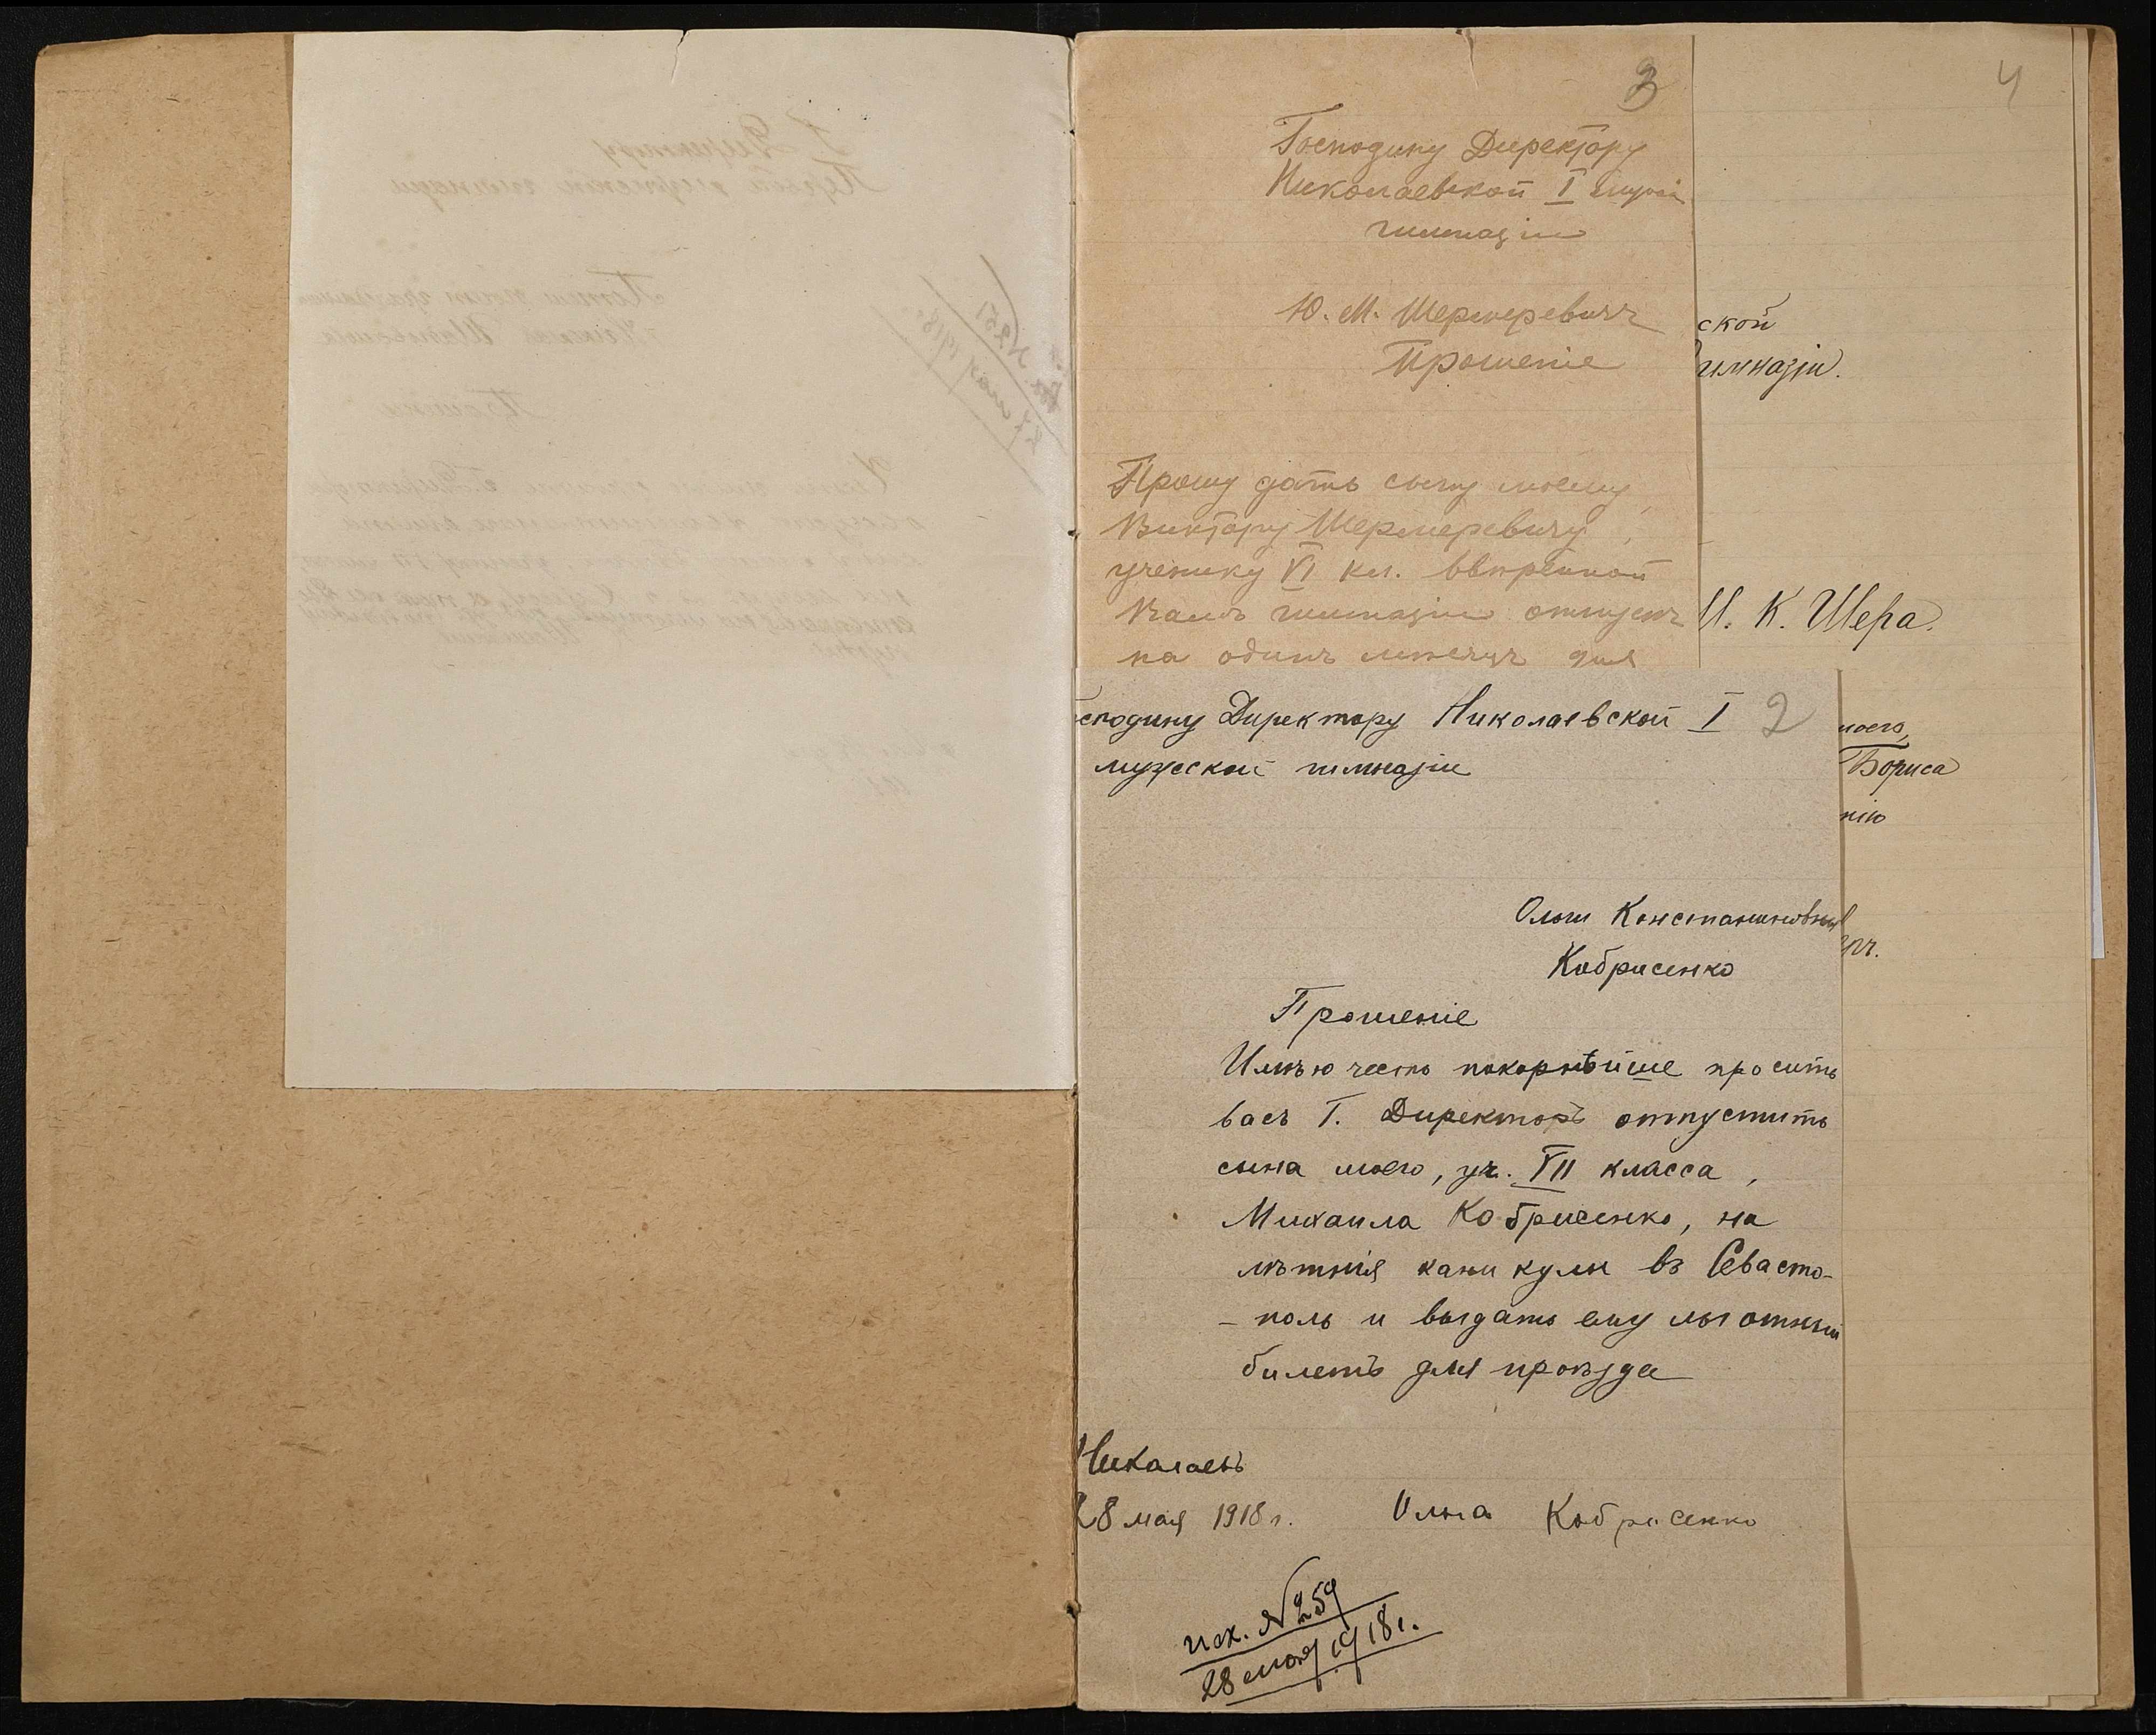 3
Господину Директору
Николаевской I мужской
гимназіи
Ю. М. Шермеревичъ
Прошеніе
Прошу дать сыну моему,
Виктору Шермеревичу,
ученику VI кл. ввѣренной
Вамъ гимназіи отпускъ
на одинъ мѣсяцъ для
4
ской
гимназіи.
И. К. Шера.
моего,
Бориса
нію
2
Господину Директору Николаевской I
мужской гимназіи
Ольги Константиновны
Кобрисенко
Прошеніе
Имѣю честь покорнѣйше просить
васъ Г. Директоръ отпустить
сына моего, уч. VII класса,
Михаила Кобрисенко, на
лѣтнія каникулы въ Севасто-
- поль и выдать ему льготный
билетъ для проѣзда
Николаевъ
28 мая 1918 г. Ольга Кобрисенко
исх. № 259
28 мая 1918 г.